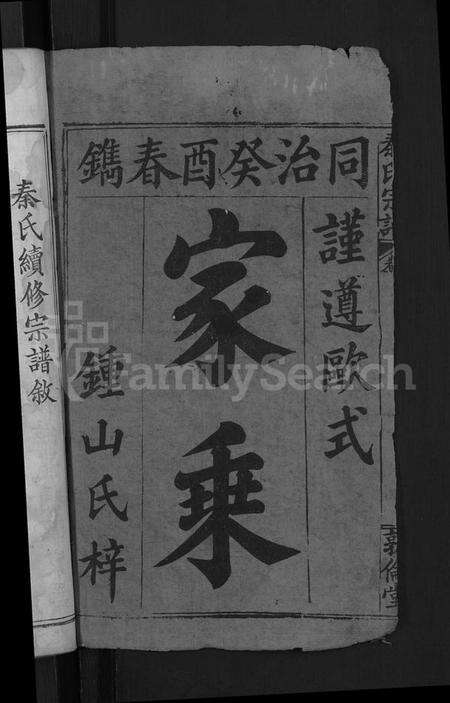 同治癸酉春鐫
謹遵歐式
家乘
鍾山氏梓
秦氏續修宗譜敘
秦氏宗譜
卷
FamilySearch